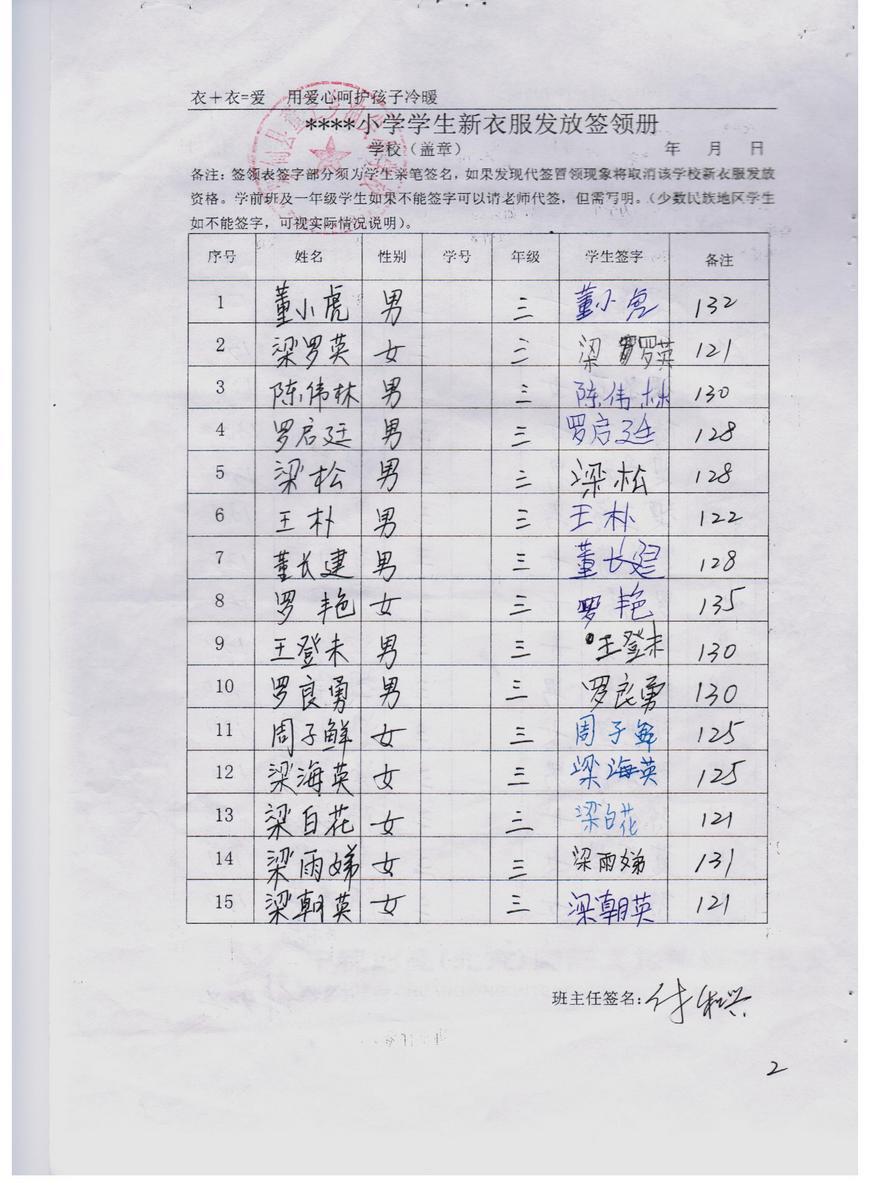 衣＋衣=爱 用爱心呵护孩子冷暖
****小学学生新衣服发放签领册
学校（盖章） 年 月 日
备注：签领表签字部分须为学生亲笔签名，如果发现代签冒领现象将取消该学校新衣服发放
资格。学前班及一年级学生如果不能签字可以请老师代签，但需写明。（少数民族地区学生
如不能签字，可视实际情况说明）。
序号 姓名 性别 学号 年级 学生签字 备注
1 董小虎 男 三 董小虎 132
2 梁罗英 女 三 梁罗英 121
3 陈伟林 男 三 陈伟林 130
4 罗启廷 男 三 罗启廷 128
5 梁松 男 三 梁松 128
6 王朴 男 三 王朴 122
7 董长建 男 三 董长建 128
8 罗艳 女 三 罗艳 135
9 王登未 男 三 王登未 130
10 罗良勇 男 三 罗良勇 130
11 周子鲜 女 三 周子鲜 125
12 梁海英 女 三 梁海英 125
13 梁白花 女 三 梁白花 121
14 梁雨娣 女 三 梁雨娣 131
15 梁朝英 女 三 梁朝英 121
班主任签名：
2